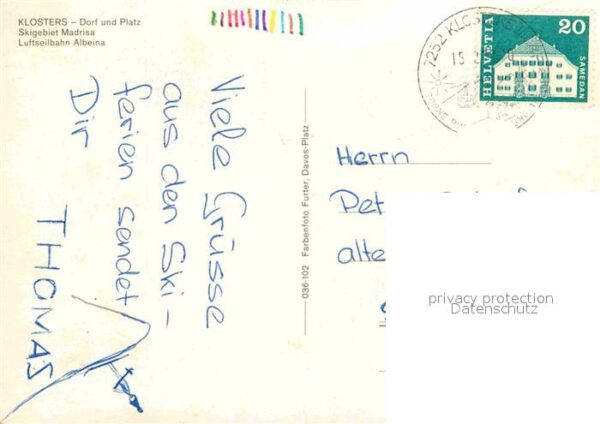 KLOSTERS – Dorf und Platz
Skigebiet Madrisa
Luftseilbahn Albeina
Viele Grüsse
aus den Ski-
ferien sendet
Dir
THOMAS
036-102 Farbenfoto Furter, Davos-Platz
7252 KLOSTERS
15
HELVETIA
20
SAMEDAN
Herrn
Pet
alte
privacy protection
Datenschutz